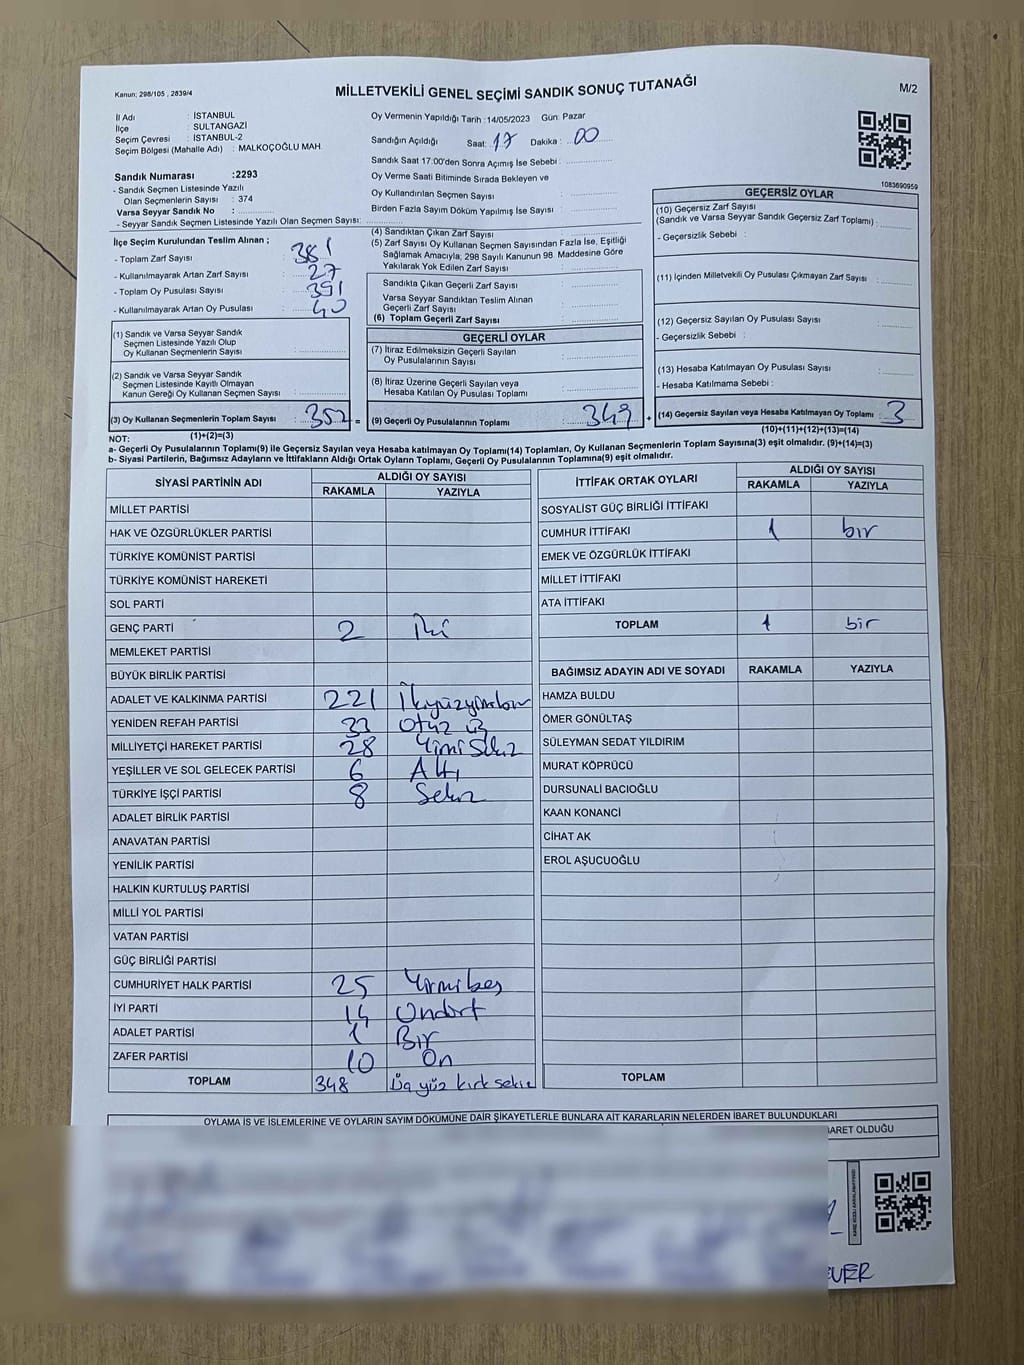 Kanun; 298/105 , 2839/4
MİLLETVEKİLİ GENEL SEÇİMİ SANDIK SONUÇ TUTANAĞI
M/2
İl Adı : İSTANBUL
İlçe : SULTANGAZİ
Seçim Çevresi : İSTANBUL-2
Seçim Bölgesi (Mahalle Adı) : MALKOÇOĞLU MAH.
Oy Vermenin Yapıldığı Tarih :14/05/2023 Gün: Pazar
Sandığın Açıldığı Saat: 17 Dakika : 00
Sandık Saat 17:00'den Sonra Açımış İse Sebebi :
Oy Verme Saati Bitiminde Sırada Bekleyen ve
Oy Kullandırılan Seçmen Sayısı
Birden Fazla Sayım Döküm Yapılmış İse Sayısı :
1083690959
Sandık Numarası :2293
- Sandık Seçmen Listesinde Yazılı
Olan Seçmenlerin Sayısı : 374
Varsa Seyyar Sandık No :
- Seyyar Sandık Seçmen Listesinde Yazılı Olan Seçmen Sayısı:
İlçe Seçim Kurulundan Teslim Alınan ;
- Toplam Zarf Sayısı : 381
- Kullanılmayarak Artan Zarf Sayısı : 27
- Toplam Oy Pusulası Sayısı : 391
- Kullanılmayarak Artan Oy Pusulası : 40
(1) Sandık ve Varsa Seyyar Sandık
Seçmen Listesinde Yazılı Olup
Oy Kullanan Seçmenlerin Sayısı :
(2) Sandık ve Varsa Seyyar Sandık
Seçmen Listesinde Kayıtlı Olmayan
Kanun Gereği Oy Kullanan Seçmen Sayısı :
(3) Oy Kullanan Seçmenlerin Toplam Sayısı : 352 =
(1)+(2)=(3)
(4) Sandıktan Çıkan Zarf Sayısı :
(5) Zarf Sayısı Oy Kullanan Seçmen Sayısından Fazla İse, Eşitliği
Sağlamak Amacıyla; 298 Sayılı Kanunun 98. Maddesine Göre
Yakılarak Yok Edilen Zarf Sayısı :
Sandıkta Çıkan Geçerli Zarf Sayısı :
Varsa Seyyar Sandıktan Teslim Alınan
Geçerli Zarf Sayısı :
(6) Toplam Geçerli Zarf Sayısı :
GEÇERLİ OYLAR
(7) İtiraz Edilmeksizin Geçerli Sayılan
Oy Pusulalarının Sayısı :
(8) İtiraz Üzerine Geçerli Sayılan veya
Hesaba Katılan Oy Pusulası Toplamı :
(9) Geçerli Oy Pusulalarının Toplamı : 349 +
GEÇERSİZ OYLAR
(10) Geçersiz Zarf Sayısı
(Sandık ve Varsa Seyyar Sandık Geçersiz Zarf Toplamı) :
- Geçersizlik Sebebi :
(11) İçinden Milletvekili Oy Pusulası Çıkmayan Zarf Sayısı :
(12) Geçersiz Sayılan Oy Pusulası Sayısı :
- Geçersizlik Sebebi :
(13) Hesaba Katılmayan Oy Pusulası Sayısı :
- Hesaba Katılmama Sebebi :
(14) Geçersiz Sayılan veya Hesaba Katılmayan Oy Toplamı : 3
(10)+(11)+(12)+(13)=(14)
NOT:
a- Geçerli Oy Pusulalarının Toplamı(9) ile Geçersiz Sayılan veya Hesaba katılmayan Oy Toplamı(14) Toplamları, Oy Kullanan Seçmenlerin Toplam Sayısına(3) eşit olmalıdır. (9)+(14)=(3)
b- Siyasi Partilerin, Bağımsız Adayların ve İttifakların Aldığı Ortak Oyların Toplamı, Geçerli Oy Pusulalarının Toplamına(9) eşit olmalıdır.
SİYASİ PARTİNİN ADI ALDIĞI OY SAYISI
RAKAMLA YAZIYLA
MİLLET PARTİSİ
HAK VE ÖZGÜRLÜKLER PARTİSİ
TÜRKİYE KOMÜNİST PARTİSİ
TÜRKİYE KOMÜNİST HAREKETİ
SOL PARTİ
GENÇ PARTİ 2 İki
MEMLEKET PARTİSİ
BÜYÜK BİRLİK PARTİSİ
ADALET VE KALKINMA PARTİSİ 221 İkiyüzyirmibir
YENİDEN REFAH PARTİSİ 33 Otuz üç
MİLLİYETÇİ HAREKET PARTİSİ 28 Yirmi Sekiz
YEŞİLLER VE SOL GELECEK PARTİSİ 6 Altı
TÜRKİYE İŞÇİ PARTİSİ 8 Sekiz
ADALET BİRLİK PARTİSİ
ANAVATAN PARTİSİ
YENİLİK PARTİSİ
HALKIN KURTULUŞ PARTİSİ
MİLLİ YOL PARTİSİ
VATAN PARTİSİ
GÜÇ BİRLİĞİ PARTİSİ
CUMHURİYET HALK PARTİSİ 25 Yirmi beş
İYİ PARTİ 14 Ondört
ADALET PARTİSİ 1 Bir
ZAFER PARTİSİ 10 On
TOPLAM 348 Üç yüz kırk sekiz
İTTİFAK ORTAK OYLARI ALDIĞI OY SAYISI
RAKAMLA YAZIYLA
SOSYALİST GÜÇ BİRLİĞİ İTTİFAKI
CUMHUR İTTİFAKI 1 bir
EMEK VE ÖZGÜRLÜK İTTİFAKI
MİLLET İTTİFAKI
ATA İTTİFAKI
TOPLAM 1 bir
BAĞIMSIZ ADAYIN ADI VE SOYADI RAKAMLA YAZIYLA
HAMZA BULDU
ÖMER GÖNÜLTAŞ
SÜLEYMAN SEDAT YILDIRIM
MURAT KÖPRÜCÜ
DURSUNALİ BACIOĞLU
KAAN KONANCİ
CİHAT AK
EROL AŞUCUOĞLU
TOPLAM
OYLAMA İŞ VE İŞLEMLERİNE VE OYLARIN SAYIM DÖKÜMÜNE DAİR ŞİKAYETLERLE BUNLARA AİT KARARLARIN NELERDEN İBARET BULUNDUKLARI
BARET OLDUĞU